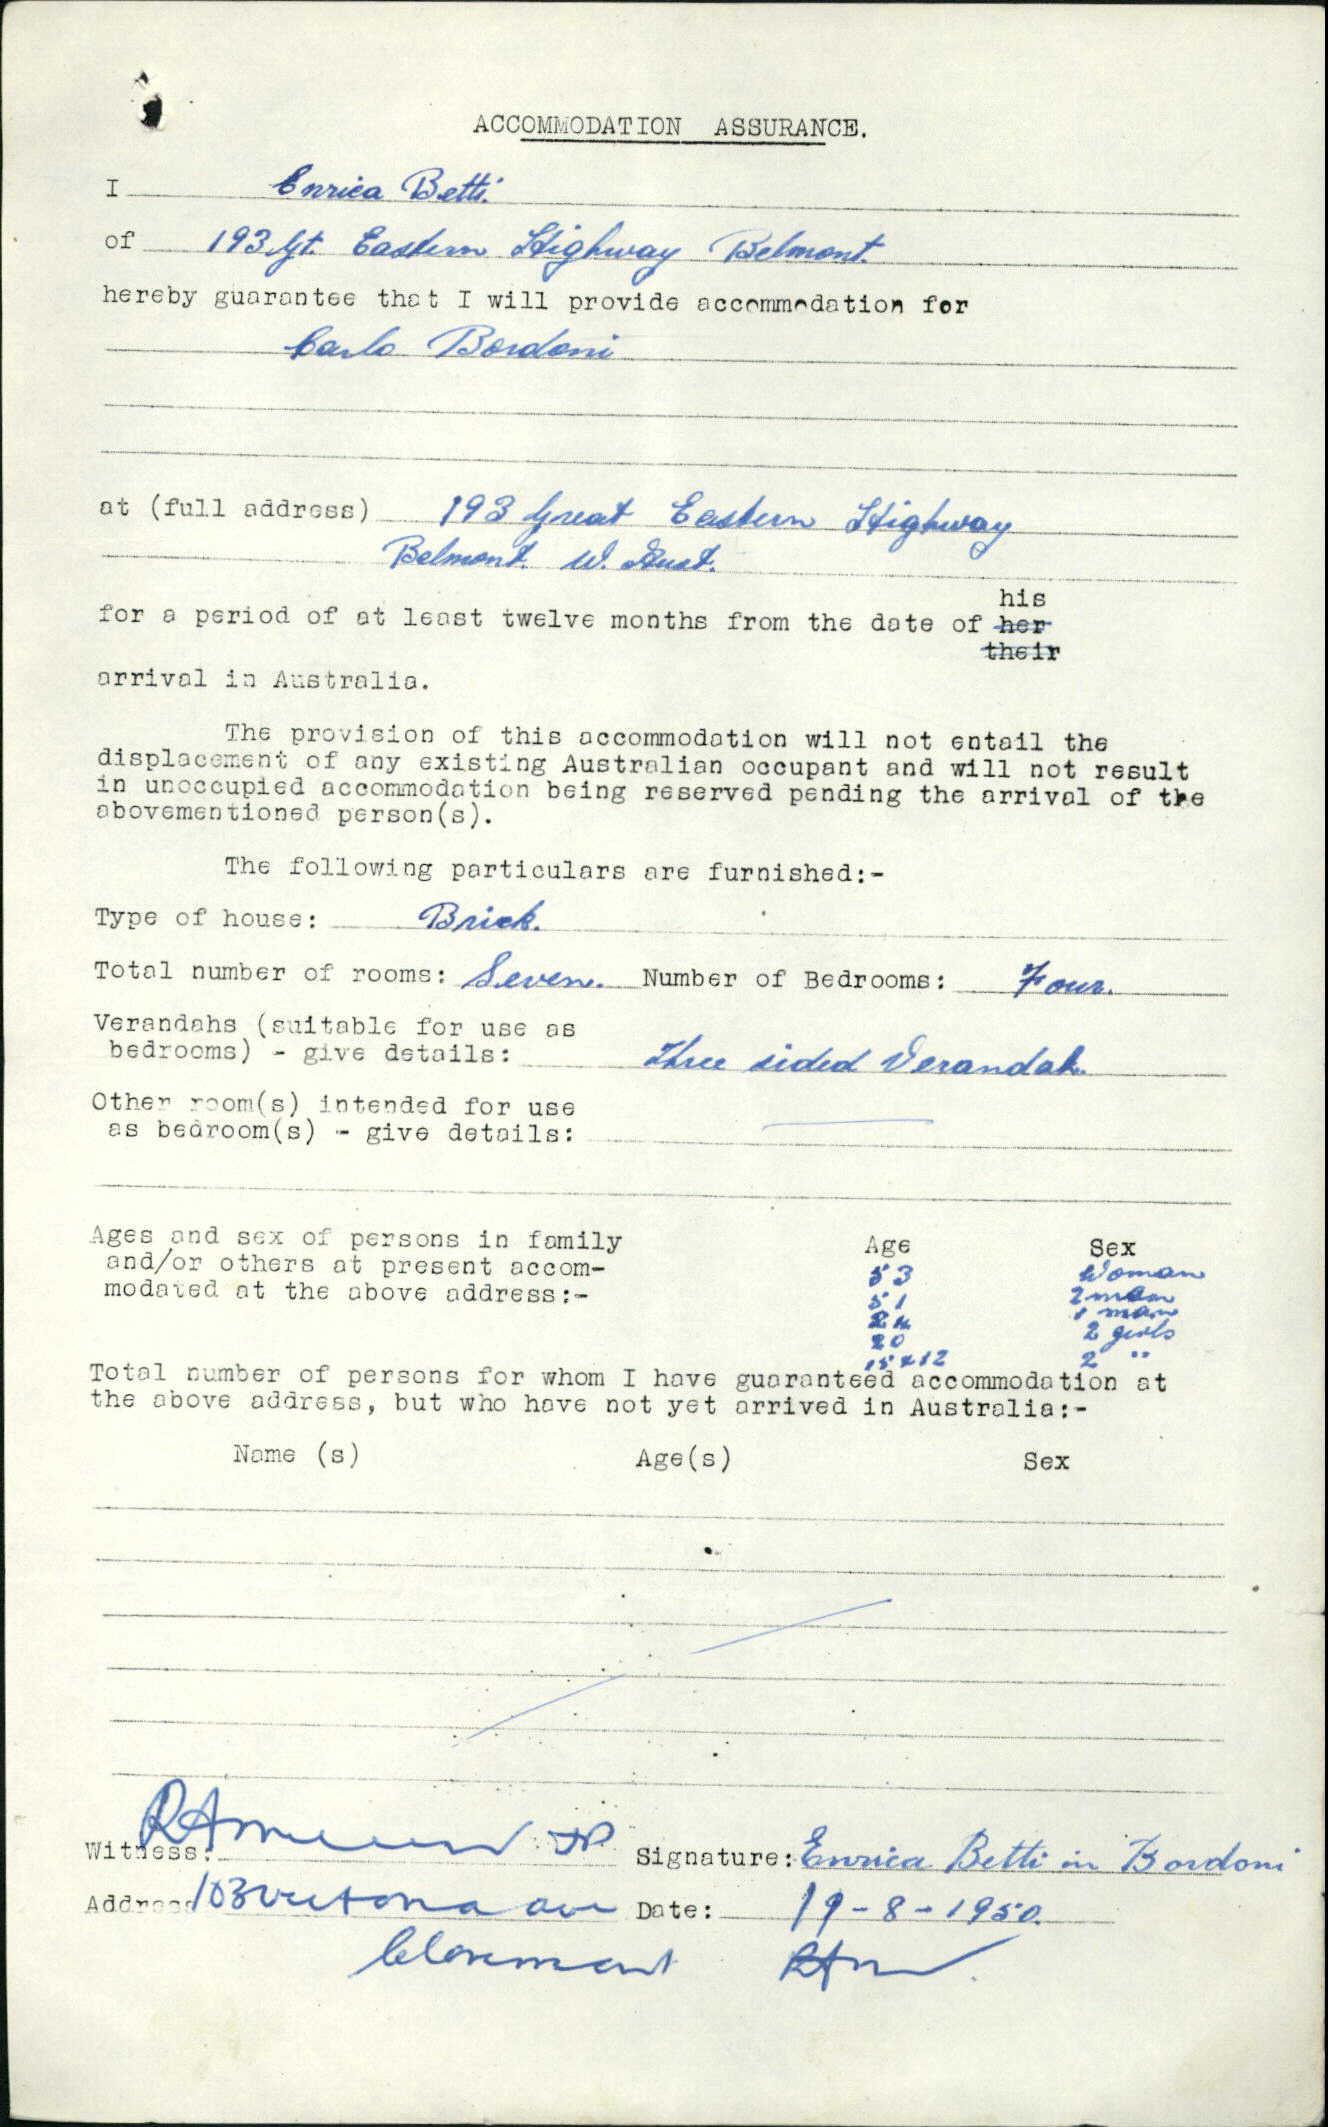 ACCOMMODATION ASSURANCE.
I Enrica Betti
of 193 Gt. Eastern Highway Belmont.
hereby guarantee that I will provide accommodation for
Carlo Bordoni
at (full address) 193 Great Eastern Highway
Belmont. W. Aust.
his
for a period of at least twelve months from the date of her
their
arrival in Australia.
The provision of this accommodation will not entail the
displacement of any existing Australian occupant and will not result
in unoccupied accommodation being reserved pending the arrival of the
abovementioned person(s).
The following particulars are furnished:-
Type of house: Brick.
Total number of rooms: Seven. Number of Bedrooms: Four.
Verandahs (suitable for use as
bedrooms) - give details: Three sided Verandah.
Other room(s) intended for use
as bedroom(s) - give details:
Ages and sex of persons in family Age Sex
and/or others at present accom- 53 Woman
modated at the above address:- 51 2 man
24 1 man
20 2 girls
15 & 12 2 "
Total number of persons for whom I have guaranteed accommodation at
the above address, but who have not yet arrived in Australia:-
Name (s) Age(s) Sex
Witness: JP Signature: Enrica Betti in Bordoni
Address 103 Victoria Ave Date: 19-8-1950.
Claremont